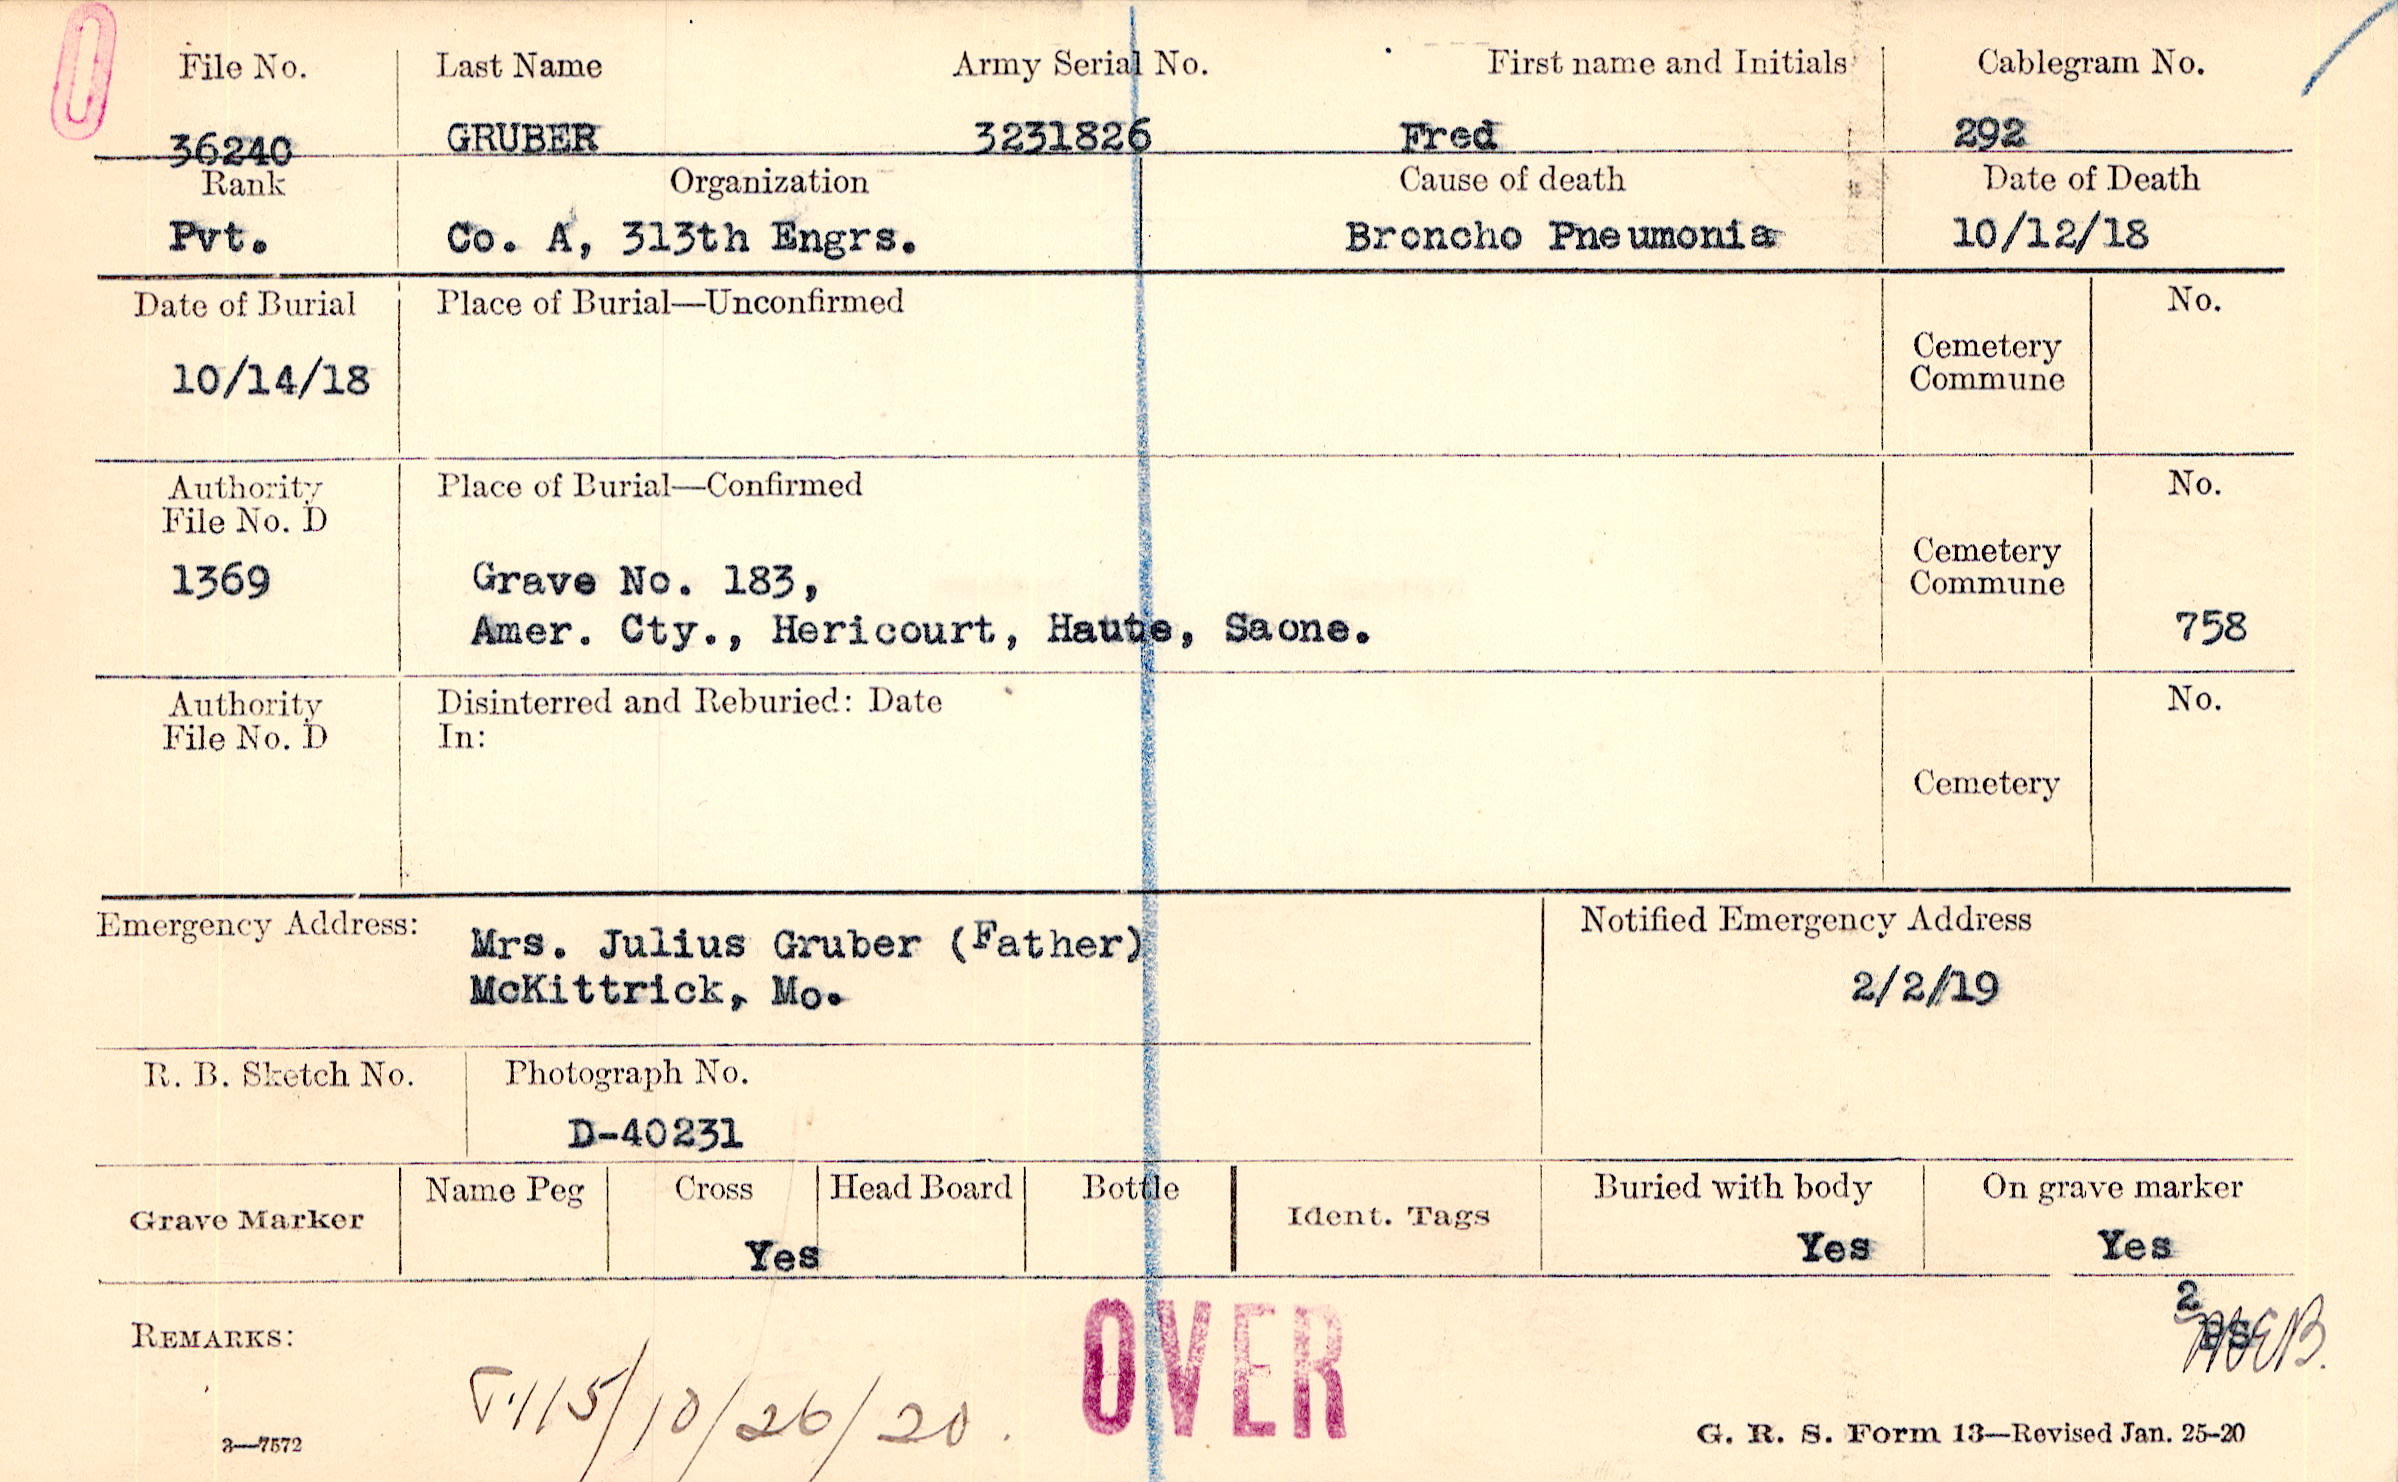 File No. Last Name Army Serial No. First name and Initials Cablegram No.
36240 GRUBER 3231826 Fred 292
Rank Organization Cause of death Date of Death
Pvt. Co. A, 313th Engrs. Broncho Pneumonia 10/12/18
Date of Burial Place of Burial—Unconfirmed No.
Cemetery
Commune
10/14/18
Authority Place of Burial—Confirmed No.
File No. D
Cemetery
Commune
1369 Grave No. 183,
Amer. Cty., Hericourt, Haute, Saone. 758
Authority Disinterred and Reburied: Date No.
File No. D In:
Cemetery
Emergency Address: Mrs. Julius Gruber (Father) Notified Emergency Address
McKittrick, Mo. 2/2/19
R. B. Sketch No. Photograph No.
D-40231
Grave Marker Name Peg Cross Head Board Bottle Ident. Tags Buried with body On grave marker
Yes Yes Yes
2
REMARKS: OVER
/10/26/20.
3—7572 G. R. S. Form 13—Revised Jan. 25-20